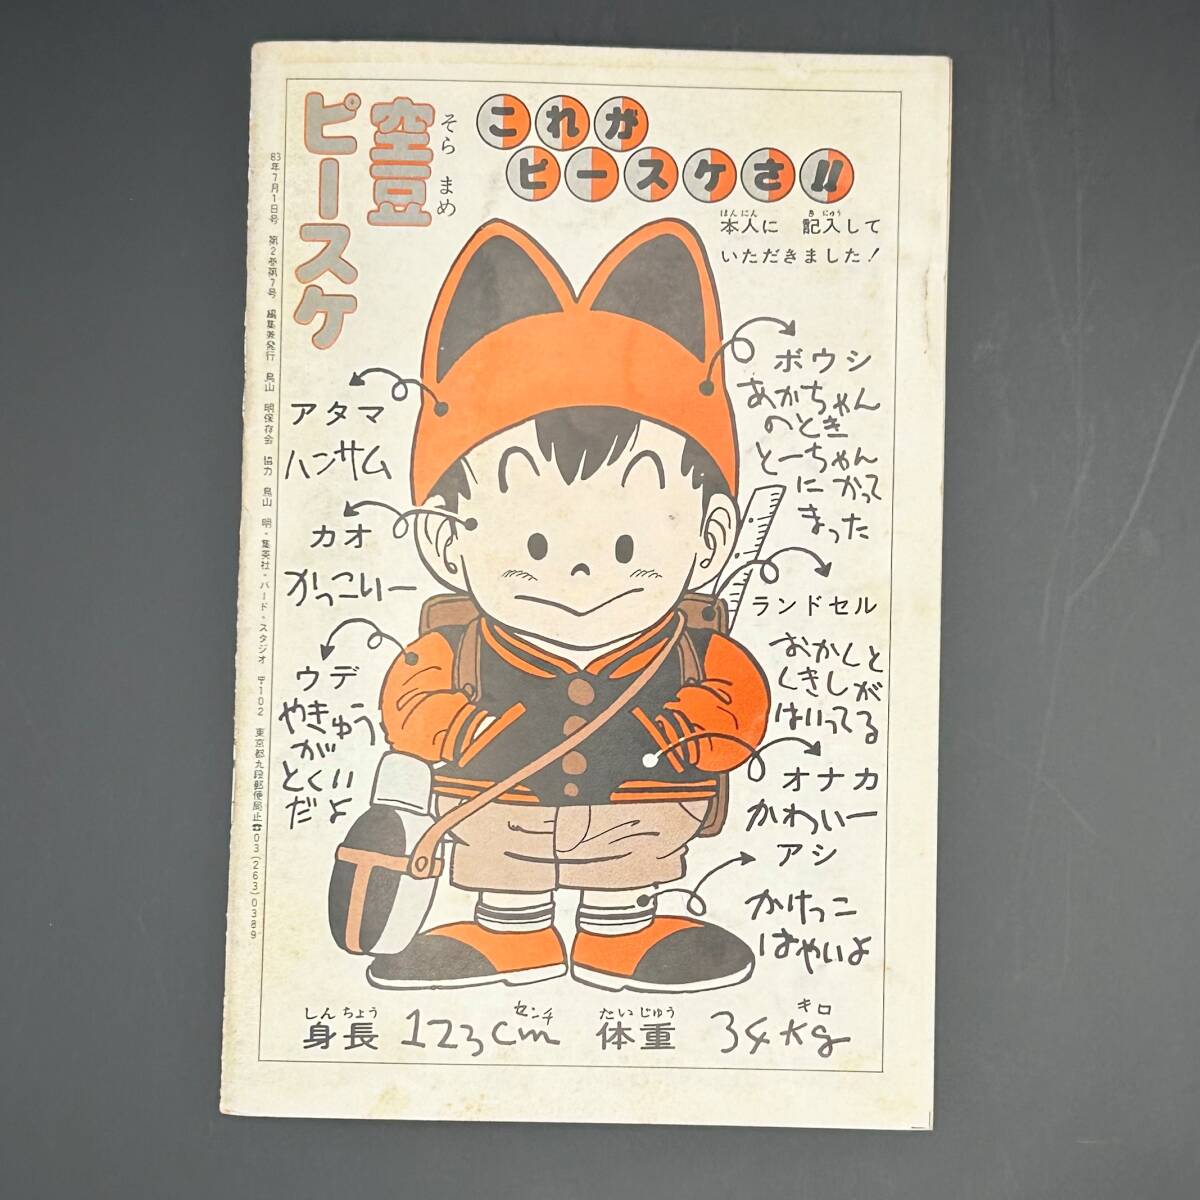 これが
ピースケさ!!
そら まめ
空豆
ピースケ
ほんにん きにゅう
本人に 記入して
いただきました!
ボウシ
あかちゃん
のとき
とーちゃん
にかって
まった
アタマ
ハンサム
カオ
かっこいー
ウデ
やきゅう
が
とくい
だよ
ランドセル
おかしと
くきしが
はいってる
オナカ
かわいー
アシ
かけっこ
はやいよ
しんちょう センチ たいじゅう キロ
身長 123cm 体重 34kg
83年7月1日号 第2巻第7号 編集兼発行 鳥山 明保存会 協力 鳥山 明・集英社・バード・スタジオ 〒102 東京都九段郵便局止☎03(263)0389